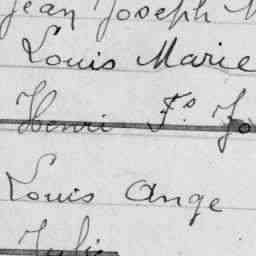 Jean Joseph
Louis Marie
Henri Fs. Jo
Louis Ange
Julie